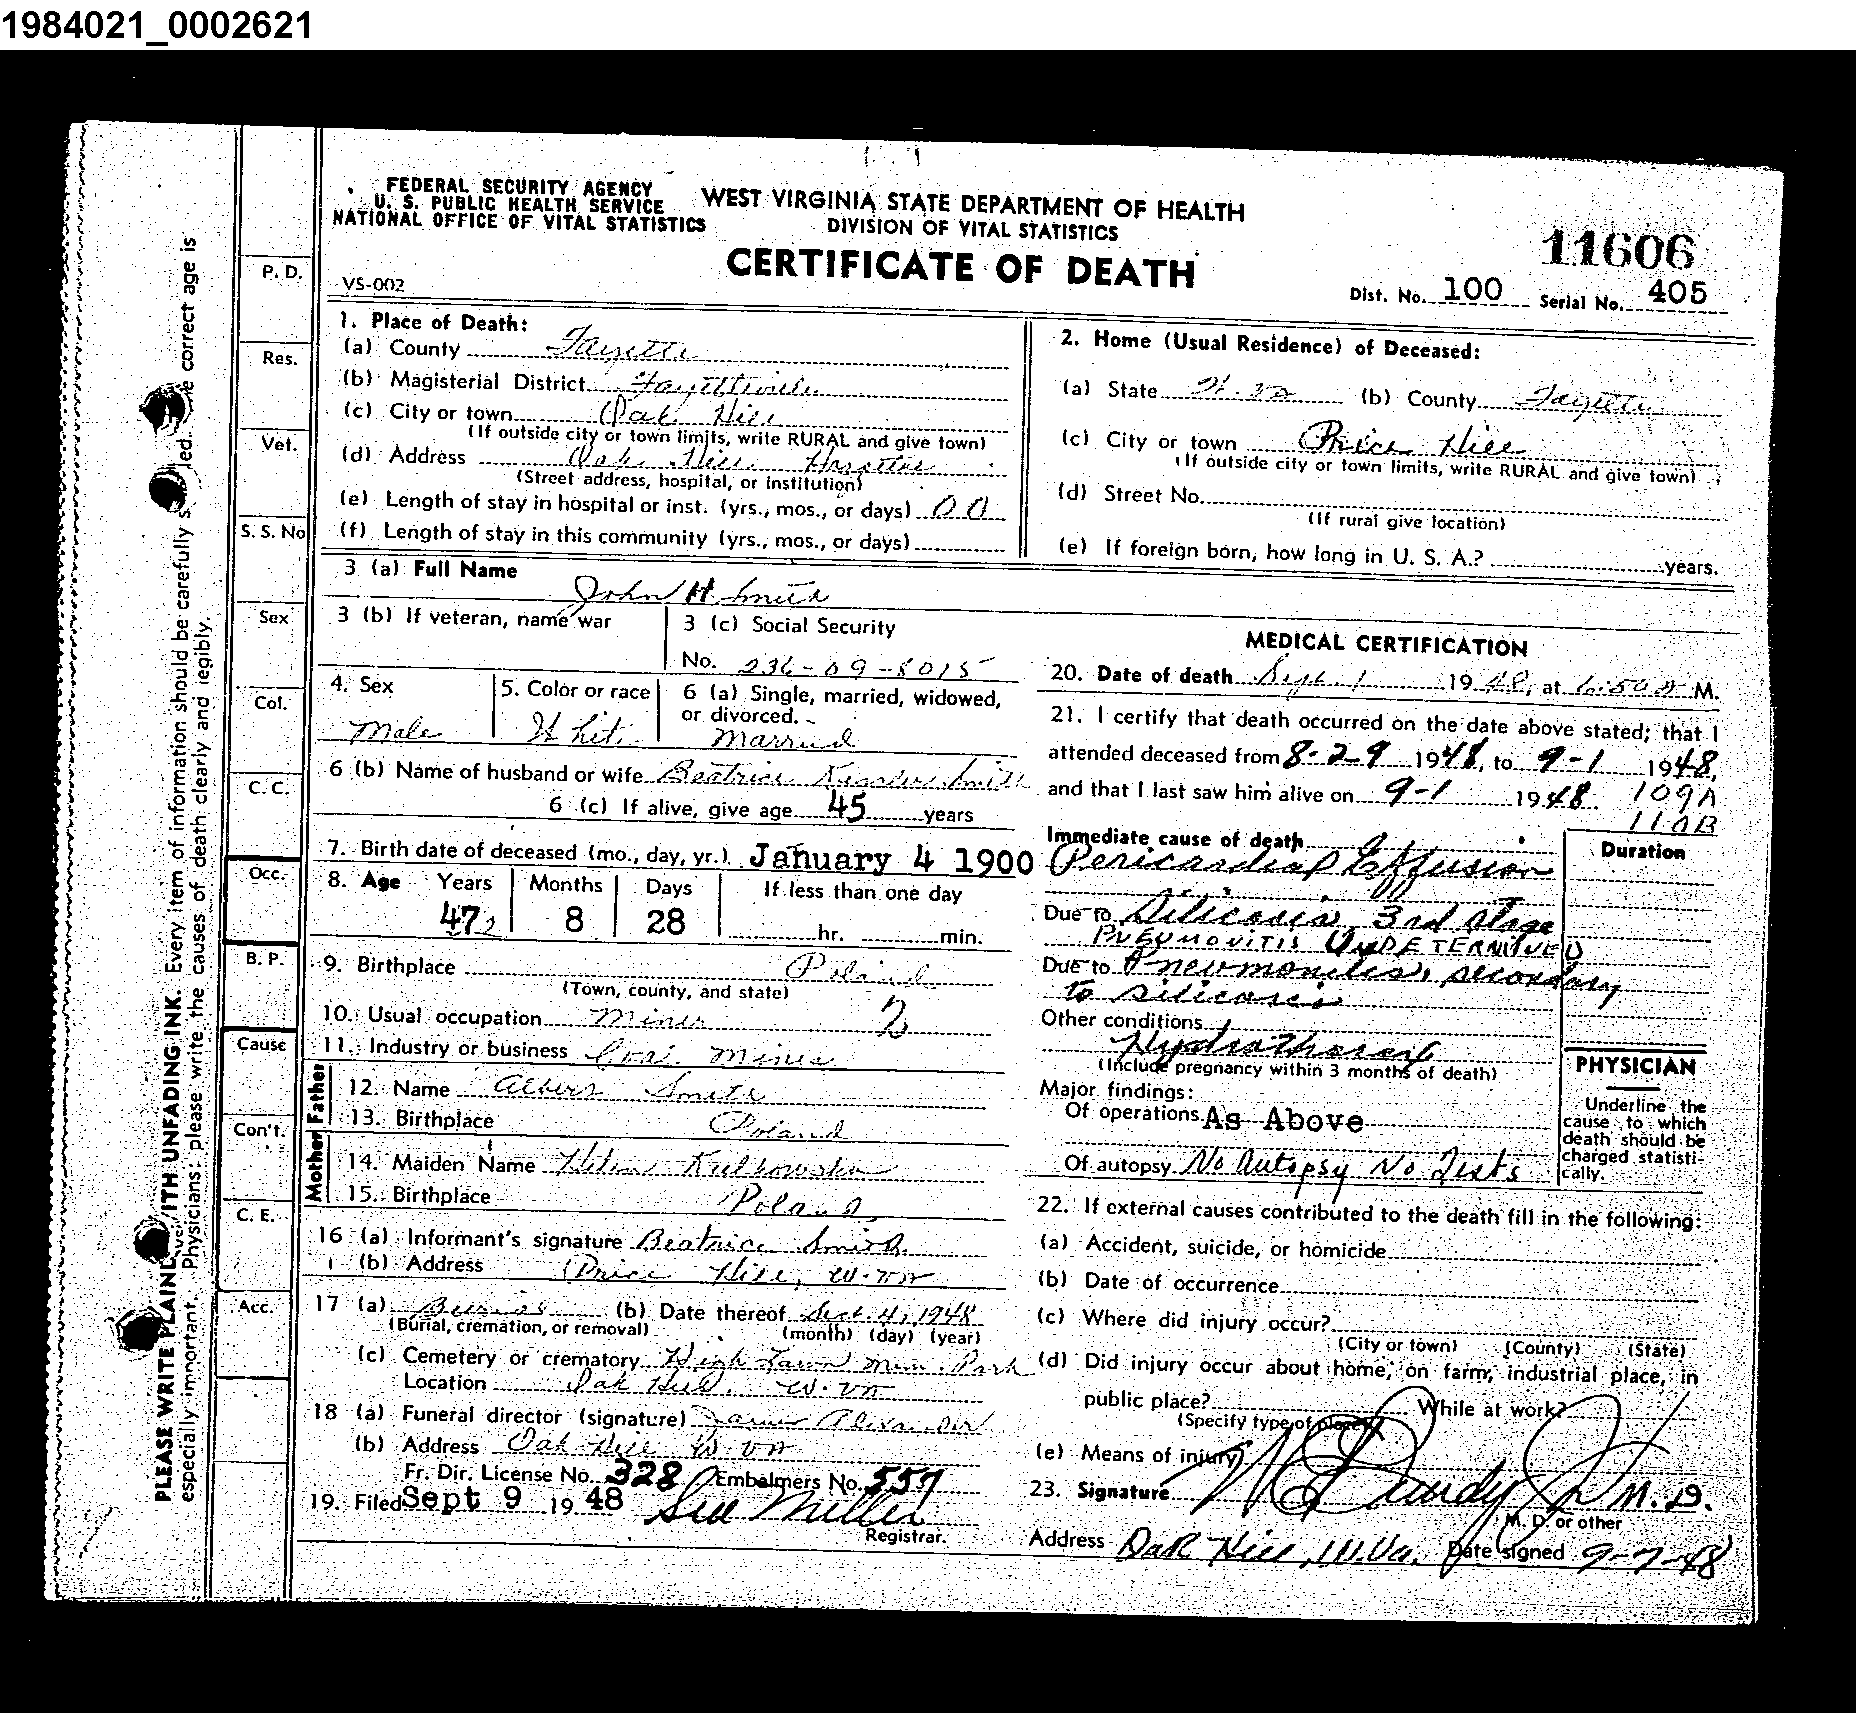 1984021_0002621
FEDERAL SECURITY AGENCY
U. S. PUBLIC HEALTH SERVICE
NATIONAL OFFICE OF VITAL STATISTICS
WEST VIRGINIA STATE DEPARTMENT OF HEALTH
DIVISION OF VITAL STATISTICS
CERTIFICATE OF DEATH
11606
VS-002
Dist. No. 100 Serial No. 405
1. Place of Death:
(a) County Fayette
(b) Magisterial District Fayetteville
(c) City or town Oak Hill
(If outside city or town limits, write RURAL and give town)
(d) Address Oak Hill Hospital
(Street address, hospital, or institution)
(e) Length of stay in hospital or inst. (yrs., mos., or days) 00
(f) Length of stay in this community (yrs., mos., or days)
2. Home (Usual Residence) of Deceased:
(a) State W. Va (b) County Fayette
(c) City or town Price Hill
(If outside city or town limits, write RURAL and give town)
(d) Street No.
(If rural give location)
(e) If foreign born, how long in U. S. A.? years.
3 (a) Full Name
John H Smith
3 (b) If veteran, name war
3 (c) Social Security
No. 236-09-8015
4. Sex
Male
5. Color or race
White
6 (a) Single, married, widowed,
or divorced.
Married
6 (b) Name of husband or wife Beatrice Smith
6 (c) If alive, give age 45 years
7. Birth date of deceased (mo., day, yr.) January 4 1900
8. Age Years Months Days If less than one day
47 8 28 hr. min.
9. Birthplace Poland
(Town, county, and state)
10. Usual occupation Miner 2
11. Industry or business Coal Mines
Father
12. Name Albert Smith
13. Birthplace Poland
Mother
14. Maiden Name Helen
15. Birthplace Poland
16 (a) Informant's signature Beatrice Smith
(b) Address Price Hill, W. Va
17 (a) Burial (b) Date thereof Sept. 4, 1948
(Burial, cremation, or removal) (month) (day) (year)
(c) Cemetery or crematory High Lawn Mem. Park
Location Oak Hill, W. Va
18 (a) Funeral director (signature) James Alexander
(b) Address Oak Hill W. Va
Fr. Dir. License No. 328 Embalmers No. 557
19. Filed Sept 9 1948 Sue Miller
Registrar.
MEDICAL CERTIFICATION
20. Date of death Sept. 1 1948, at M.
21. I certify that death occurred on the date above stated; that I
attended deceased from 8-29 1948, to 9-1 1948,
and that I last saw him alive on 9-1 1948. 109A
110B
Immediate cause of death
Pericardial Effusion
Duration
Due to Silicosis, 3rd stage
PNEUMONITIS UNDETERMINED
Due to Pneumonitis, secondary
to silicosis
Other conditions
Hydrothorax
(Include pregnancy within 3 months of death)
Major findings:
Of operations As Above
Of autopsy No Autopsy No Tests
PHYSICIAN
Underline the
cause to which
death should be
charged statisti-
cally.
22. If external causes contributed to the death fill in the following:
(a) Accident, suicide, or homicide
(b) Date of occurrence
(c) Where did injury occur?
(City or town) (County) (State)
(d) Did injury occur about home, on farm, industrial place, in
public place? While at work?
(Specify type of place)
(e) Means of injury
23. Signature M.D.
M. D. or other
Address Oak Hill, W.Va. Date signed 9-7-48
P. D.
Res.
Vet.
S. S. No
Sex
Col.
C. C.
Occ.
B. P.
Cause
Con't.
C. E.
Acc.
PLEASE WRITE PLAINLY WITH UNFADING INK. Every item of information should be carefully s led. e correct age is
especially important. Physicians: please write the causes of death clearly and legibly.